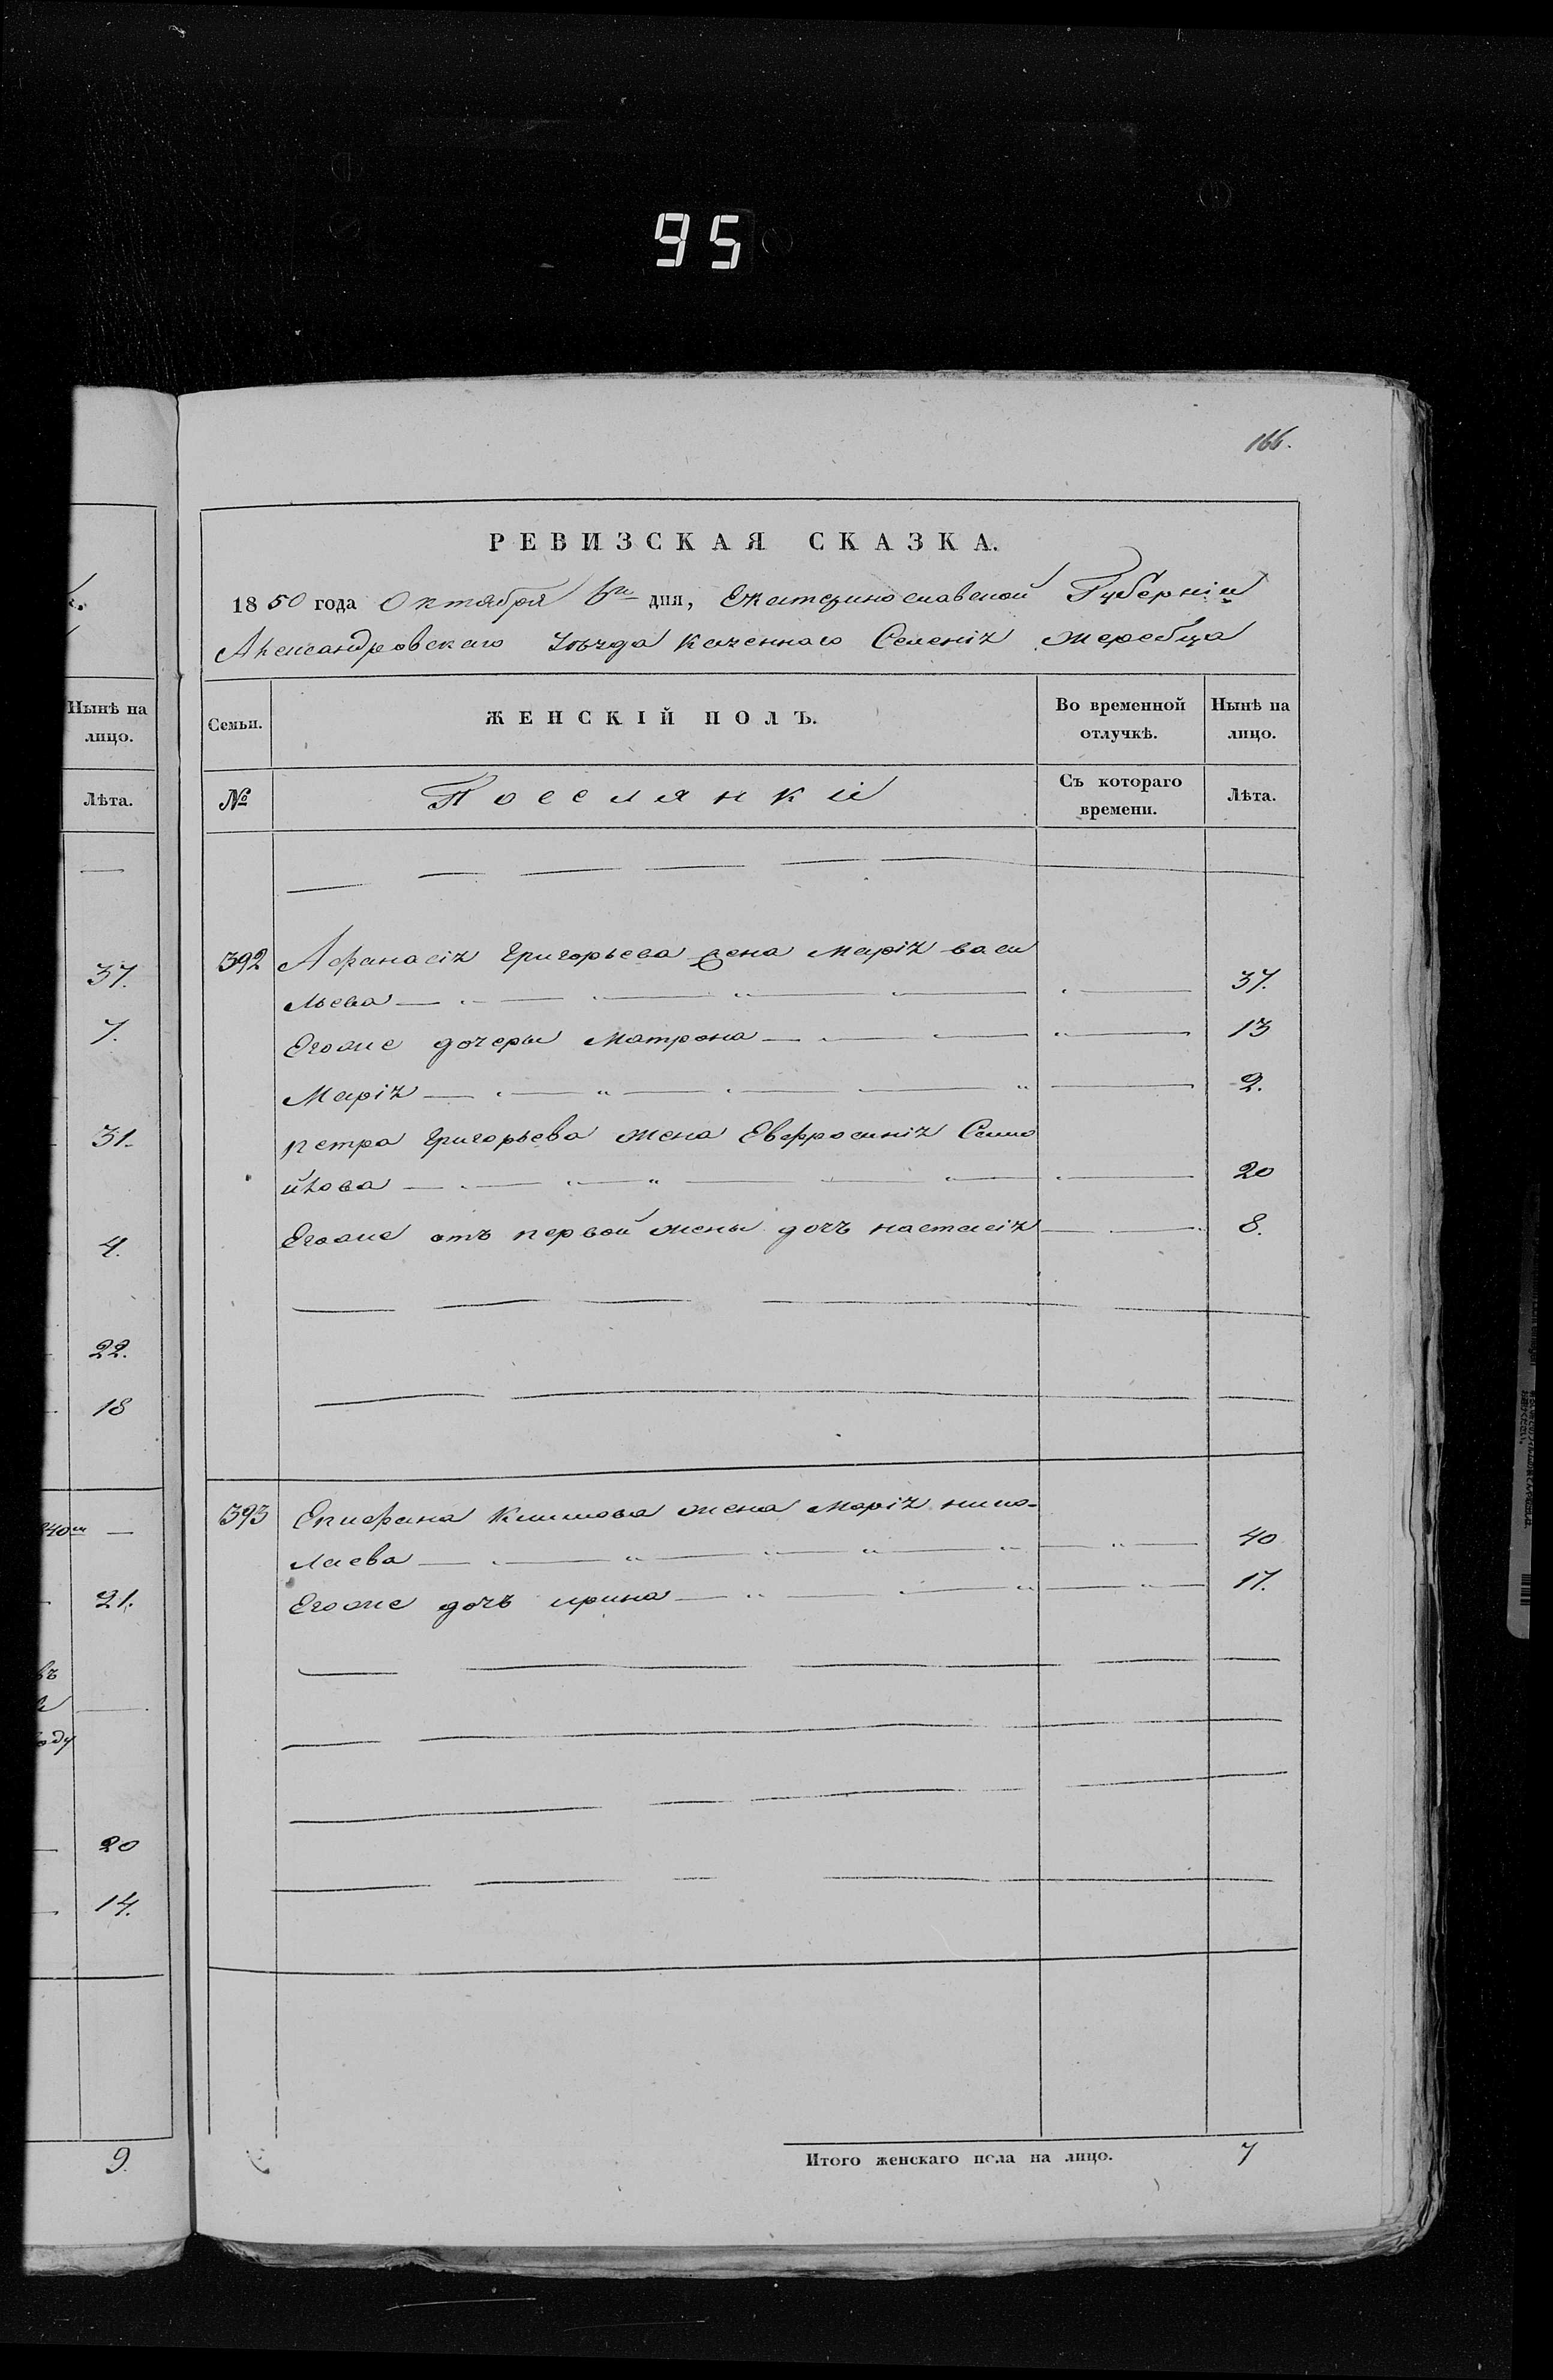 95
166.
Нынѣ на
лицо.
Лѣта.
37.
7.
31.
4.
22.
18
840
21.
въ
оду
20
14.
9.
РЕВИЗСКАЯ СКАЗКА.
1850 года Октября 6го дня, Екатеринославской Губерніи
Александровскаго Уѣзда Казеннаго Селенія Жеребца
Семьи.
ЖЕНСКІЙ ПОЛЪ.
Во временной
отлучкѣ.
Нынѣ на
лицо.
№
Поселянки
Съ котораго
времени.
Лѣта.
392 Афанасія Григорьева жена Марія васи
льева 37.
Егоже дочеры Матрона 13
Марія 2.
петра Григорьева жена Евфросинія
20
Егоже отъ первой жены дочъ настасія 8.
393 Епифана Климова жена Марія нико-
лаева 40
Егоже дочъ ирина 17.
Итого женскаго пола на лицо. 7